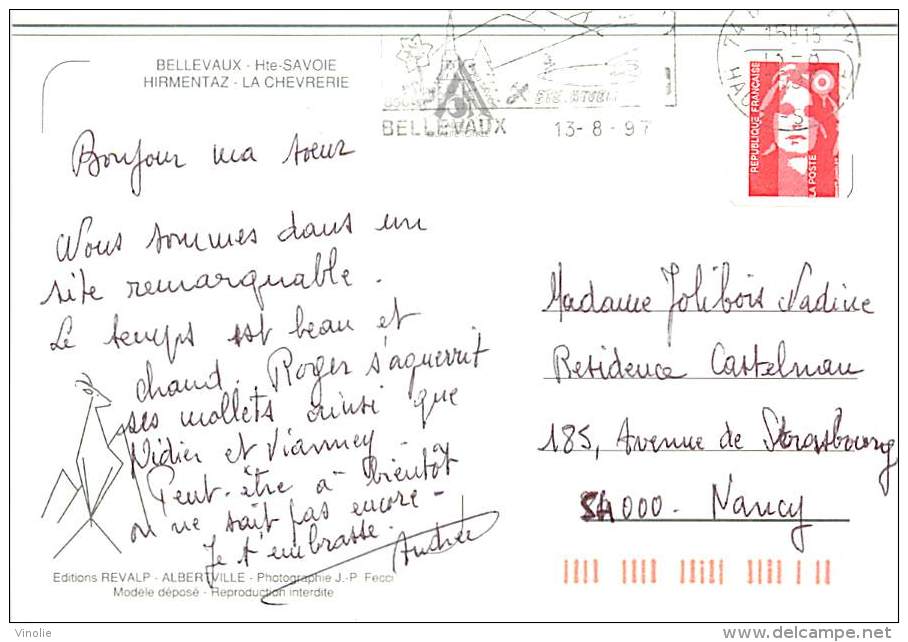 BELLEVAUX - Hte-SAVOIE
HIRMENTAZ - LA CHEVRERIE
BELLEVAUX 13-8-97
15H15
REPUBLIQUE FRANÇAISE
LA POSTE
Bonjour ma soeur
Nous sommes dans un
site remarquable.
Le temps est beau et
chaud. Roger s'aguerrit
ses mollets ainsi que
Didier et Vianney
Peut-être à bientôt
on ne sait pas encore -
Je t'embrasse.
Andrée
Madame Jolibois Nadine
Residence Castelnau
185, Avenue de Strasbourg
54000 - Nancy
Editions REVALP - ALBERTVILLE - Photographie J.-P Fecci
Modèle déposé - Reproduction interdite
Vinolie
delcampe.net